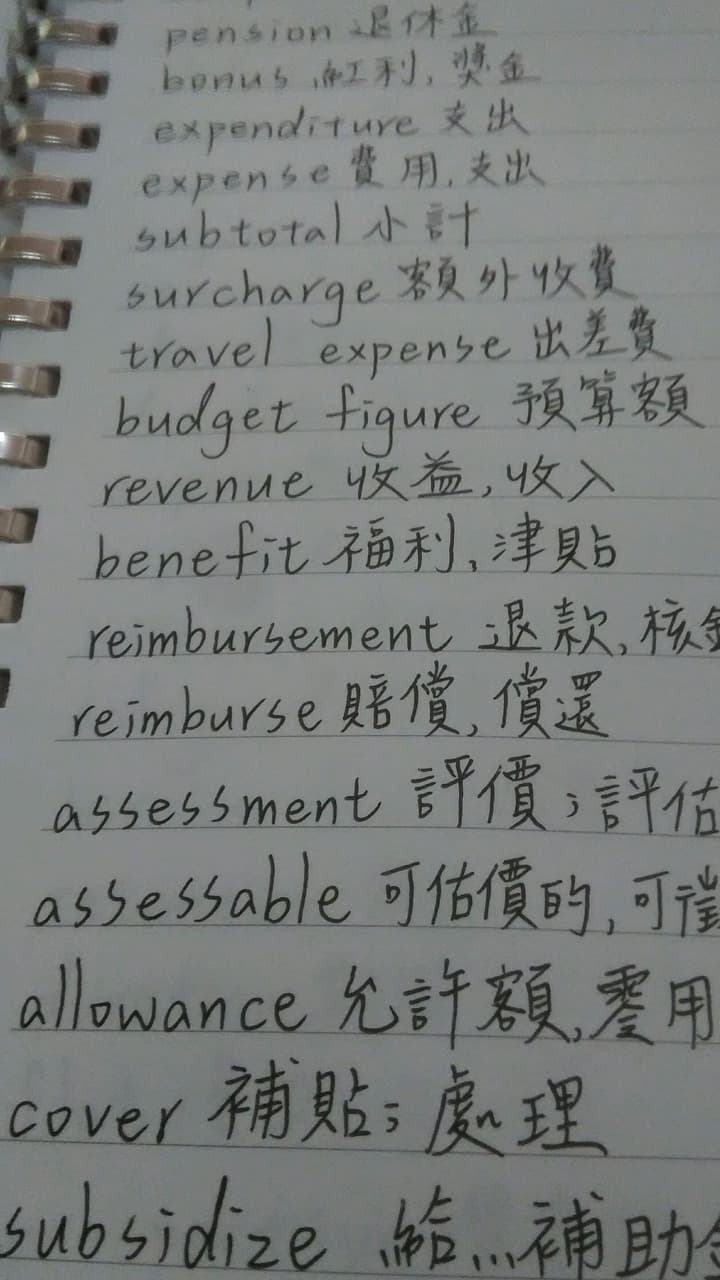 pension 退休金
bonus 紅利, 獎金
expenditure 支出
expense 費用, 支出
subtotal 小計
surcharge 額外收費
travel expense 出差費
budget figure 預算額
revenue 收益, 收入
benefit 福利, 津貼
reimbursement 退款, 核
reimburse 賠償, 償還
assessment 評價; 評估
assessable 可估價的, 可
allowance 允許額, 零用
cover 補貼; 處理
subsidize 給...補助